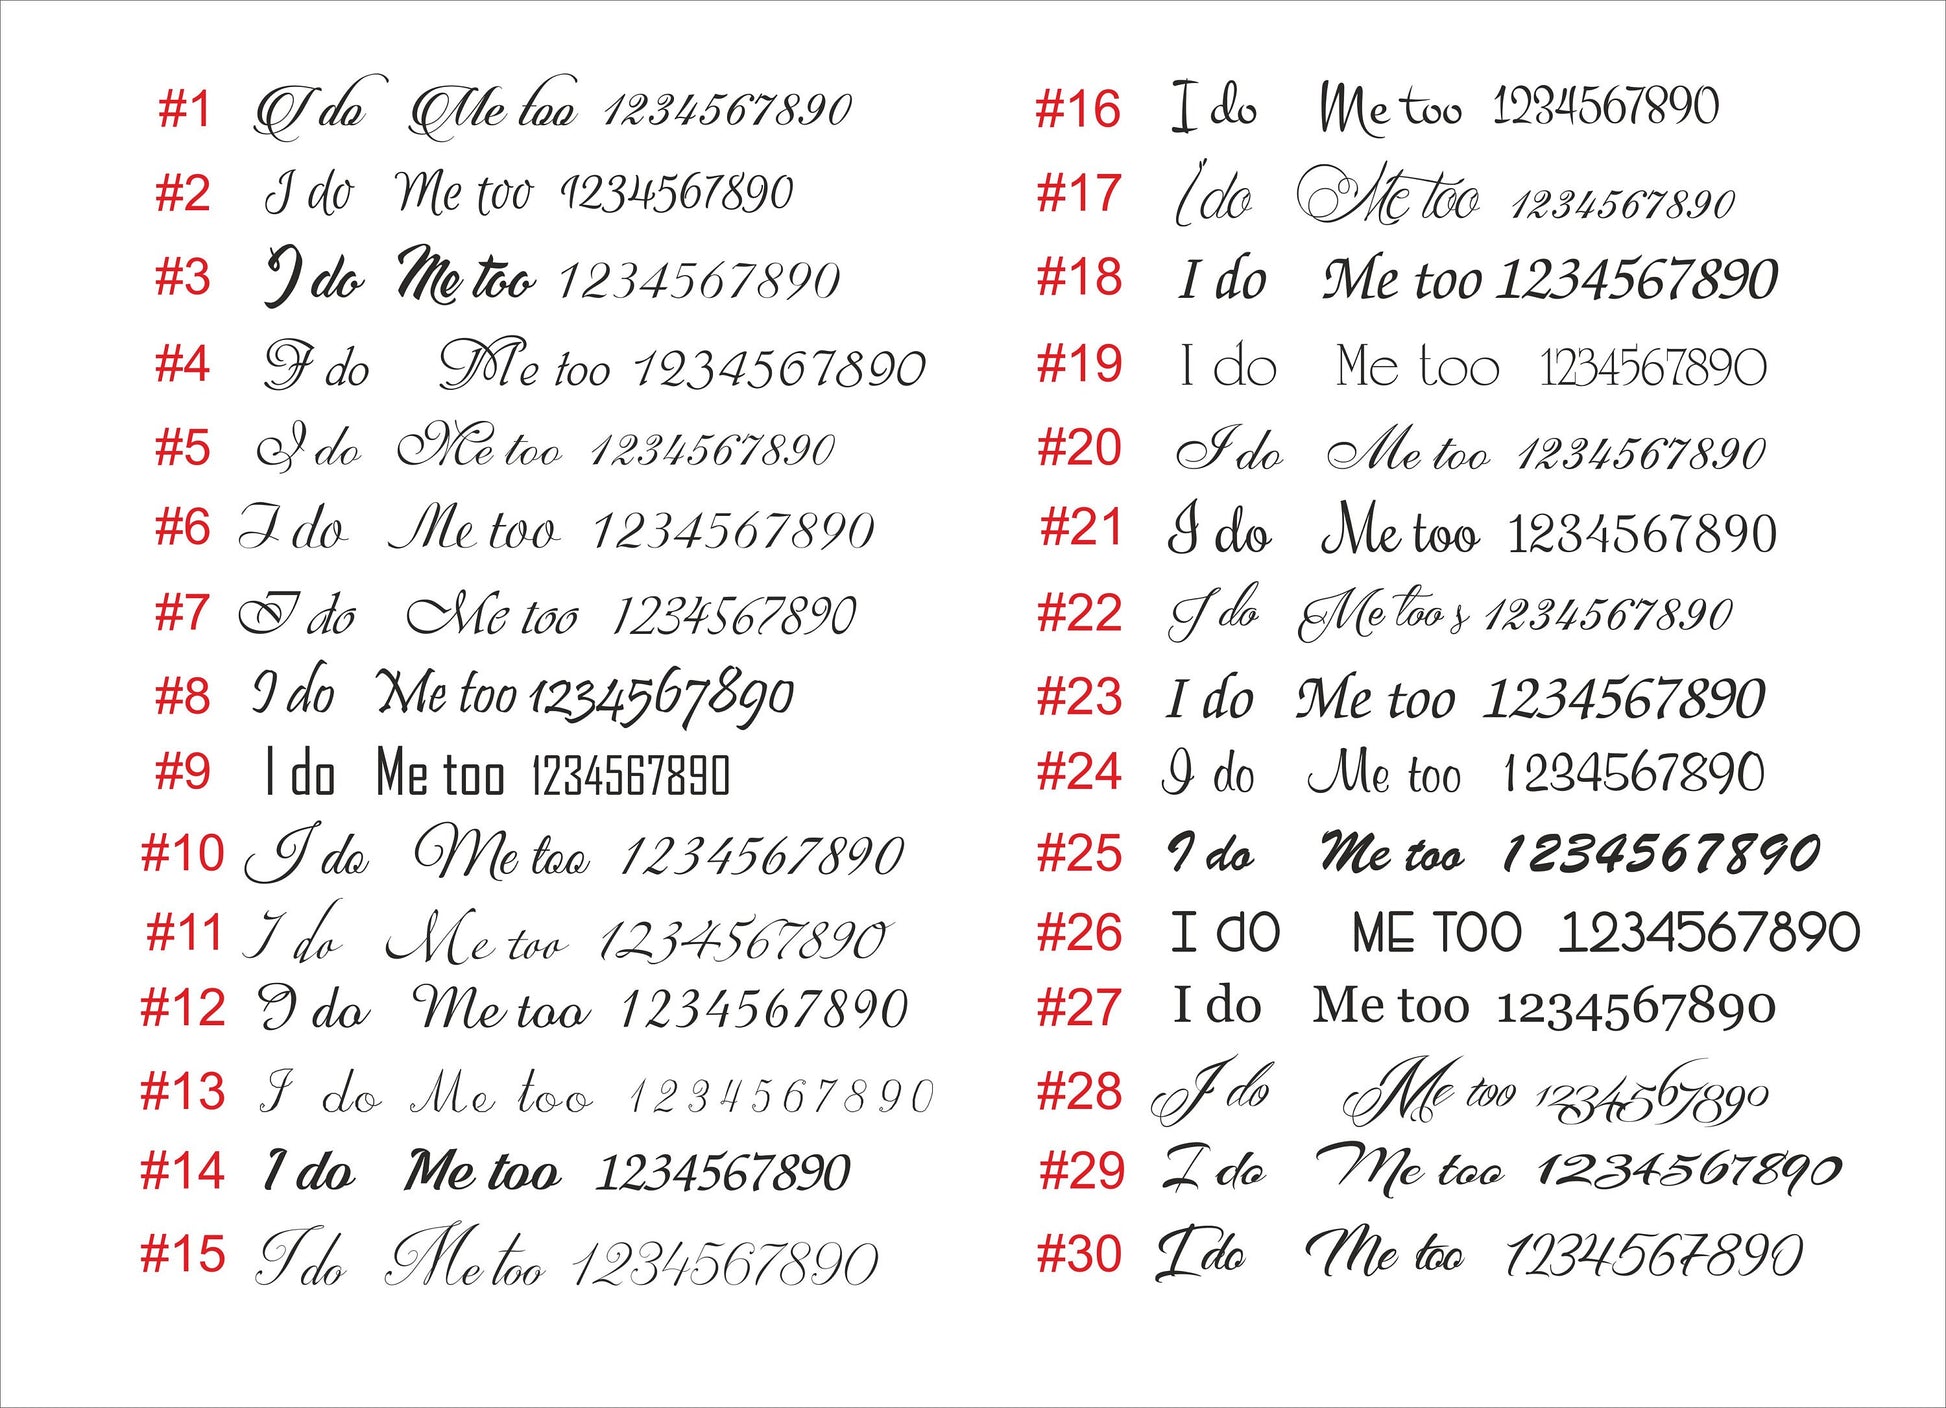 #1 I do Me too 1234567890
#2 I do Me too 1234567890
#3 I do Me too 1234567890
#4 I do Me too 1234567890
#5 I do Me too 1234567890
#6 I do Me too 1234567890
#7 I do Me too 1234567890
#8 I do Me too 1234567890
#9 I do Me too 1234567890
#10 I do Me too 1234567890
#11 I do Me too 1234567890
#12 I do Me too 1234567890
#13 I do Me too 1234567890
#14 I do Me too 1234567890
#15 I do Me too 1234567890
#16 I do Me too 1234567890
#17 I do Me too 1234567890
#18 I do Me too 1234567890
#19 I do Me too 1234567890
#20 I do Me too 1234567890
#21 I do Me too 1234567890
#22 I do Me too s 1234567890
#23 I do Me too 1234567890
#24 I do Me too 1234567890
#25 I do Me too 1234567890
#26 I dO ME TOO 1234567890
#27 I do Me too 1234567890
#28 I do Me too 1234567890
#29 I do Me too 1234567890
#30 I do Me too 1234567890